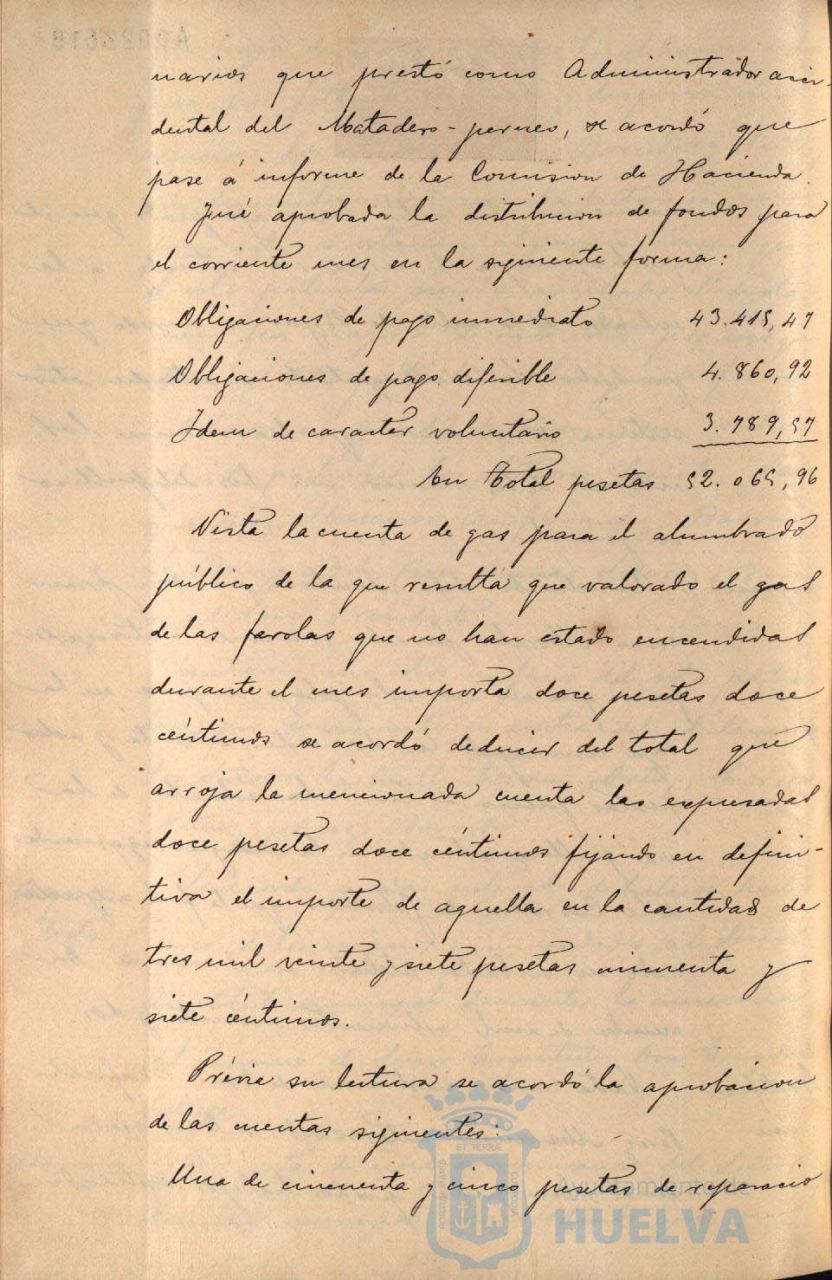 narios que prestó como Administrador acci-
dental del Matadero-perneo, se acordó que
pase á informe de la Comision de Hacienda.
Fué aprobada la distribucion de fondos para
el corriente mes en la siguiente forma:
Obligaciones de pago inmediato 43.415,47
Obligaciones de pago diferible 4.860,92
Idem de carácter voluntario 3.789,57
En Total pesetas 52.065,96
Vista la cuenta de gas para el alumbrado
público de la que resulta que valorado el gas
de las farolas que no han estado encendidas
durante el mes importa doce pesetas doce
céntimos se acordó deducir del total que
arroja la mencionada cuenta las expresadas
doce pesetas doce céntimos fijando en defini-
tiva el importe de aquella en la cantidad de
tres mil veinte y siete pesetas cincuenta y
siete céntimos.
Prévia su lectura se acordó la aprobacion
de las cuentas siguientes:
Una de cincuenta y cinco pesetas de reparacio
Ayuntamiento de
HUELVA